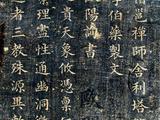 邕禪師舍利塔
李伯藥製文
陽詢書
貴天象攸憑稟
理盡性通幽洞
者三教殊源異